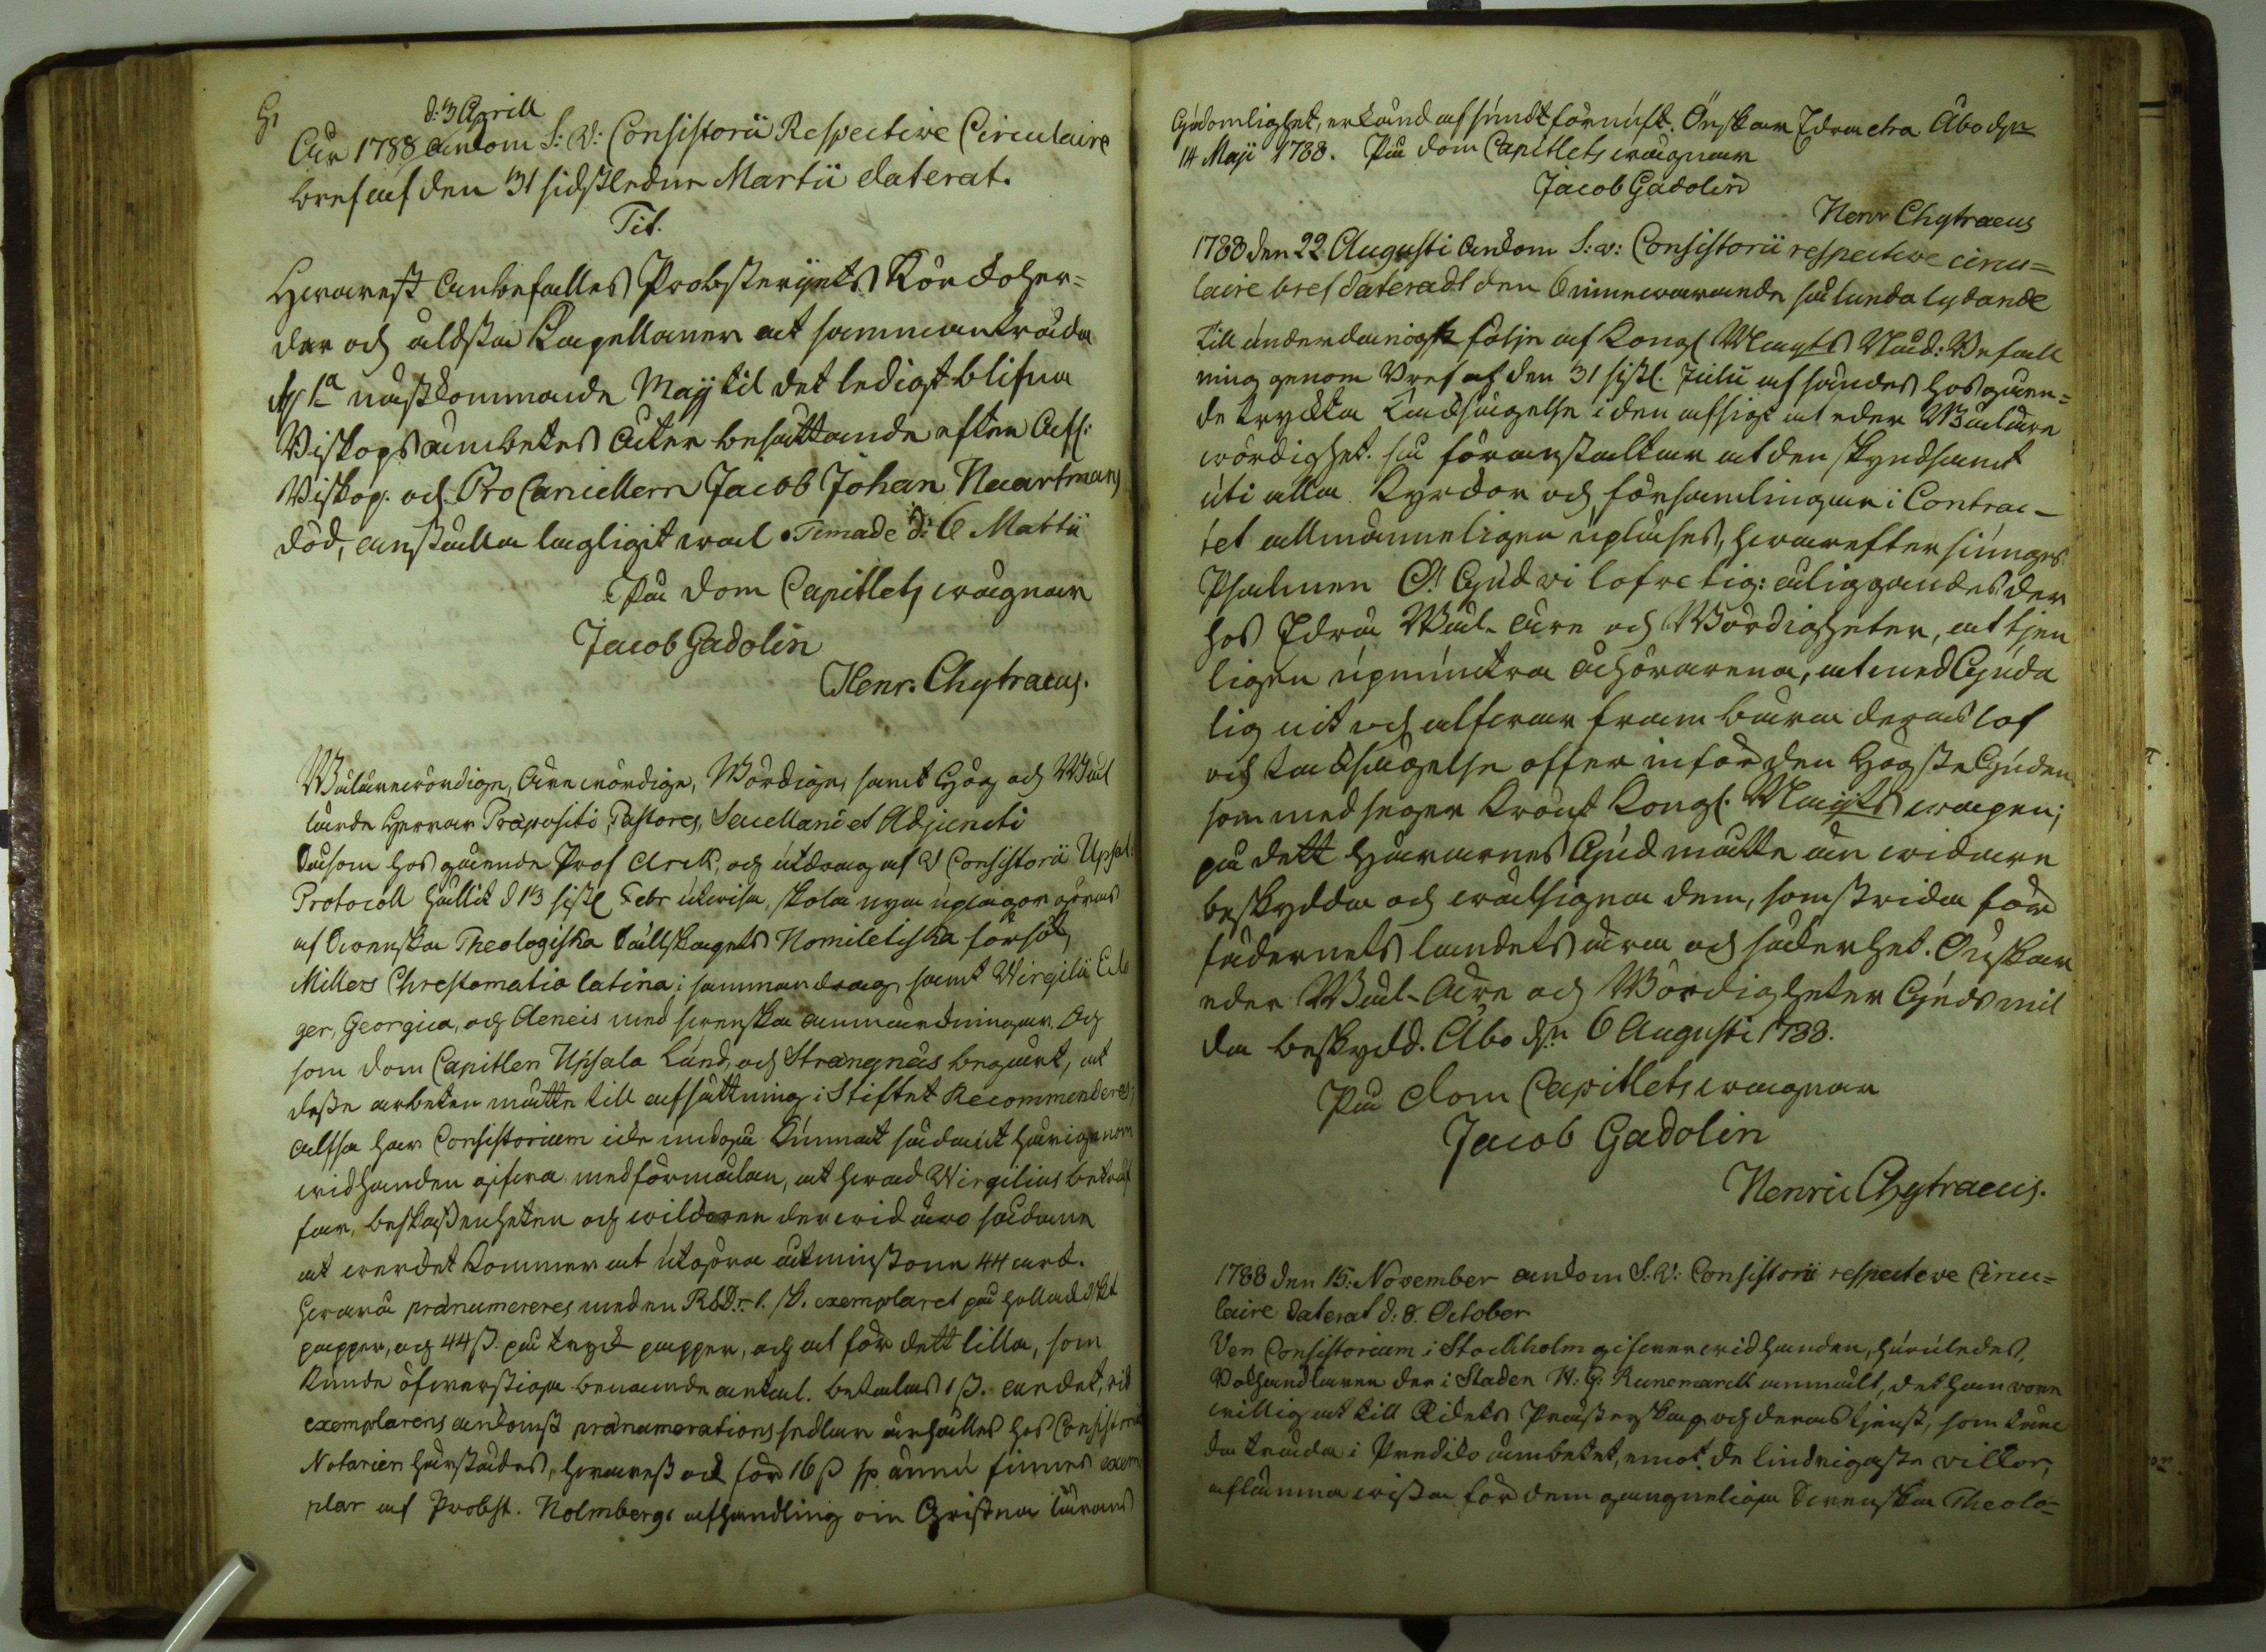 d: 3 Aprill
Åhr 1788 ankom S: V: Consistorii Respective Circulaire
bref af den 31 sidstledne Martii daterat.
Tit.
Hvarest anbefalles Probsteriets Kyrckoher-
dar och äldsta Kapellaner at sammanträda
d 1a nästkommande Maij til det ledigt blifna
Biskops ämbetes åter besättande efter Aff:
Biskop. och ProCancellern Jacob Johan Haartmans
död, anställa lagligit wal. Timade d: 6 Martii
På Dom Capitlets wägnar
Jacob Gadolin
Henr. Chytraeus.
Wälärewördige, Ärewördige, Wördige, samt Hög och Wäl
lärde Herrar Præpositi, Pastores, Sacellani et Adjuncti
Såsom hos gående Prof Arck, och utdrag af V Consistorii Upsal:
Protocoll hållit d 13 sistl Febr utwisa, skola nya uplagor göras
af Swenska Theologiska Sällskapets Homiletiska försök,
Millers Chrestomatia latina i sammandrag, samt Virgilii Eclo
ger, Georgica, och Aeneis med swenska anmärckningar. Och
som Dom Capitlen Upsala Lund, och Strängnäs begärt, at
desse arbeten måtte till afsättning i Stiftet Recommenderes;
altså har Consistorium icke undgå kunnat sådant härigenom
widhanden gifwa med förmälan, at hwad Virgilius beträf
far, beskaffenheten och wilckoren der wid äro sådane
at werdet kommer at utgöra åtminstone 44 arck.
hwarå prænumereres med en RSD:r 1. sk. exemplaret på hollandskt
papper, och 44 ß. på tryck papper, och at för dett lilla, som
kunde öfwerstiga benämde antal. betalas 1 ß. arcket, wid
exemplarens ankomst prænumerations sedlar ärhålles hos Consistorii
Notarien härstädes, hwarest och för 16 ß sp ännu finnes exem
plar af Probst. Holmbergs afhandling om Christna lärans
Gudomlighet, erkänd af sundt förnuft. Önskar Edra etra Åbo dn
14 Maji 1788. På Dom Capitlets wägnar
Jacob Gadolin
Henr Chytraeus
1788 den 22 Augusti ankom S: v: Consistorii respective circu=
laire bref dateradt den 6 innewarande sålunda lydande
Till underdånigst följe af Kongl Mayts Nåd: Befall
ning genom Bref af den 31 sistl. Julii afsändes hosgåen=
de tryckta Tacksägelse i den afsigt at eder Wälärе
wördighet. så föranstaltar at den skyndsamt
uti alla Kyrckor och församlingar i Contrac-
tet allmänneligen upläses, hwarefter siunges
Psalmen O! Gud wi lofve tig: åliggandes der
hos Edra Wäl-Äre och Wördigheter, at tjen
ligen upmuntra åhörarena, at med Guda
lig nit och alfwar frambära deras lof
och tacksägelse offer inför den Högste Guden
som med seger krönt Kongl. Maijts wapen;
på dett Härarnes Gud måtte än widare
beskydda och wälsigna dem, som strida för
fädernets landets ära och säkerhet. Önskar
eder Wäl-Äre och Wördigheter Guds mil
da beskydd. Åbo dn 6 Augusti 1788.
På Dom Capitlets wägnar
Jacob Gadolin
Henric Chytraeus.
1788 den 15: November ankom S: V: Consistorii respective Circu=
laire daterat d: 8. October
Ven Consistorium i Stockholm gifwer widhanden, huruledes,
Bokhandlaren der i Staden H: G: Runemarck anmält, det han vore
willig at till Rikets Prästerskap och deras tjenst, som tänc
ka träda i Prediko ämbetet, emot de lindrigaste vilkor,
aflämna wissa för dem gangneliga Swenska Theolo=